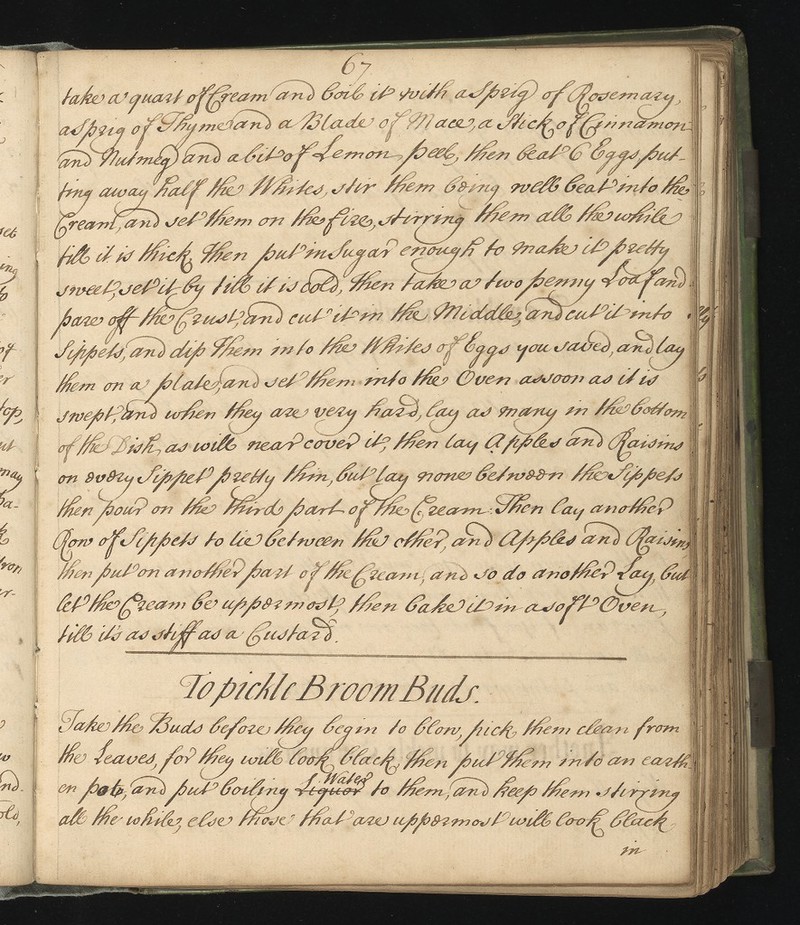 67
take a quart of Cream and boil it with a Sprig of Rosemary,
a Sprig of Thyme and a Blade of Mace, a Stick of Cinnamon
and Nutmeg and a bit of Lemon peel, then beat 6 Eggs put-
ting away half the Whites, stir them being well beat into the
Cream, and set them on the fire, stirring them all the while
till it is thick, then put in Sugar enough to make it pretty
sweet, set it by till it is cold, then take a two penny Loaf and
pare off the Crust, and cut it in the Middle, and cut it into
Sippets, and dip them into the Whites of Eggs you saved, and lay
them on a plate, and set them into the Oven assoon as it is
swept, and when they are very hard, lay as many in the bottom
of the Dish, as will near cover it, then lay Apples and Raisins
on every Sippet pretty thin, but lay none between the Sippets
then pour on the third part of the Cream. Then lay another
Row of Sippets to lie between the other, and Apples and Raisins
then put on another part of the Cream, and so do another Lay, but
let the Cream be uppermost, then bake it in a soft Oven,
till it's as stiff as a Custard.
To pickle Broom Buds.
Take the Buds before they begin to blow, pick them clean from
the Leaves, for they will look black, then put them into an earth-
en pots, and put boiling Liquor Water to them, and keep them stirring
all the while, else those that are uppermost will look black
in